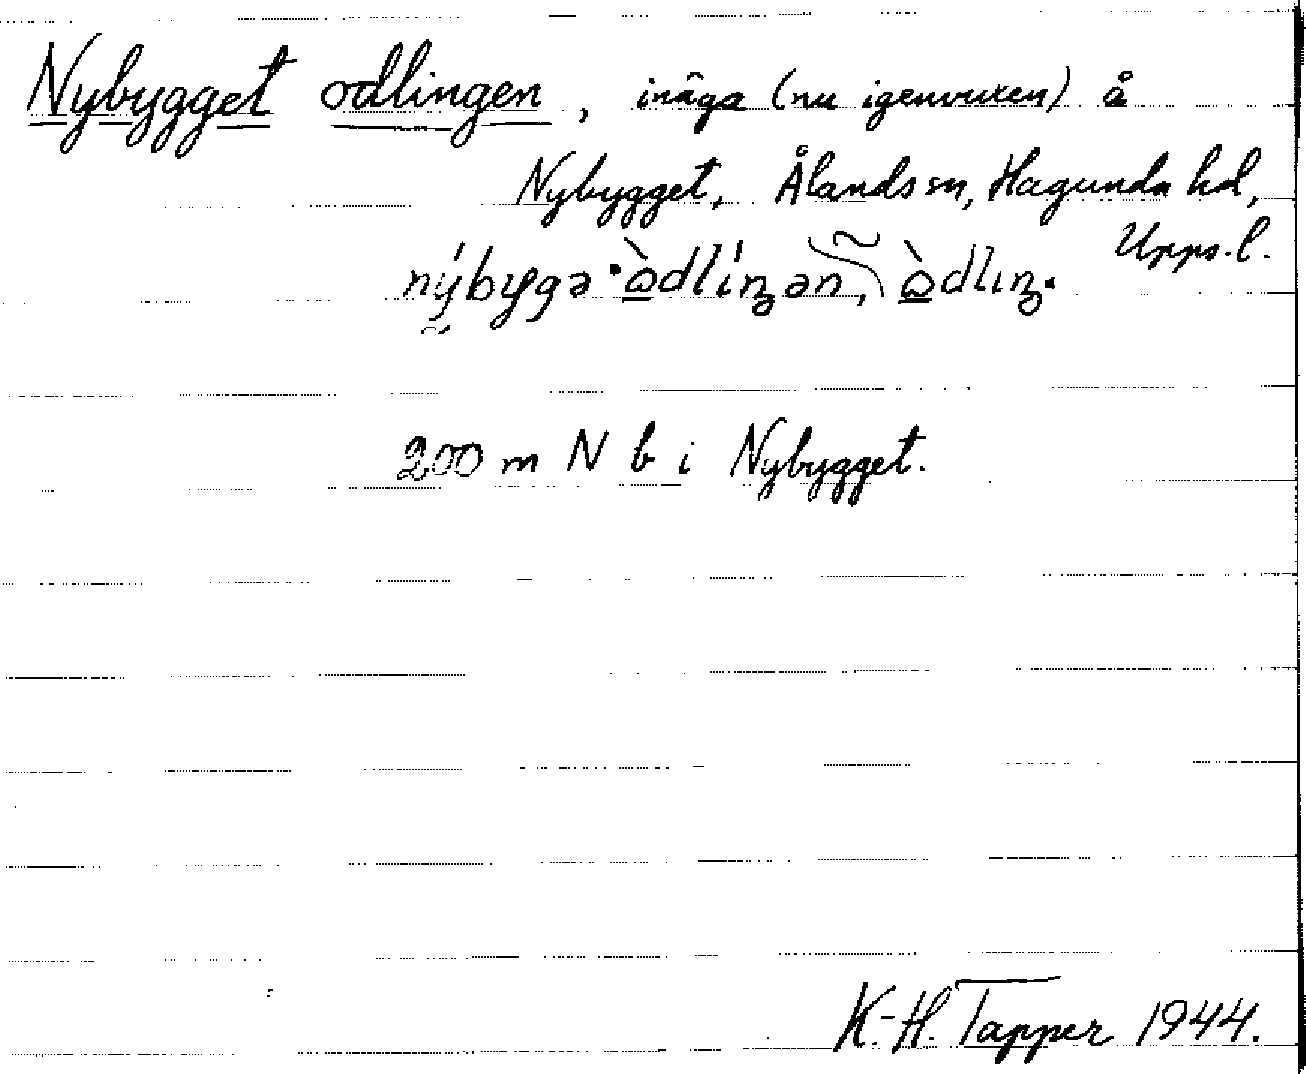 Nybygget odlingen, inäga (nu igenvuxen) å
Nybygget, Ålands sn, Hagunda hd,
Upps. l.
200 m N b i Nybygget.
K.-H. Tapper 1944.